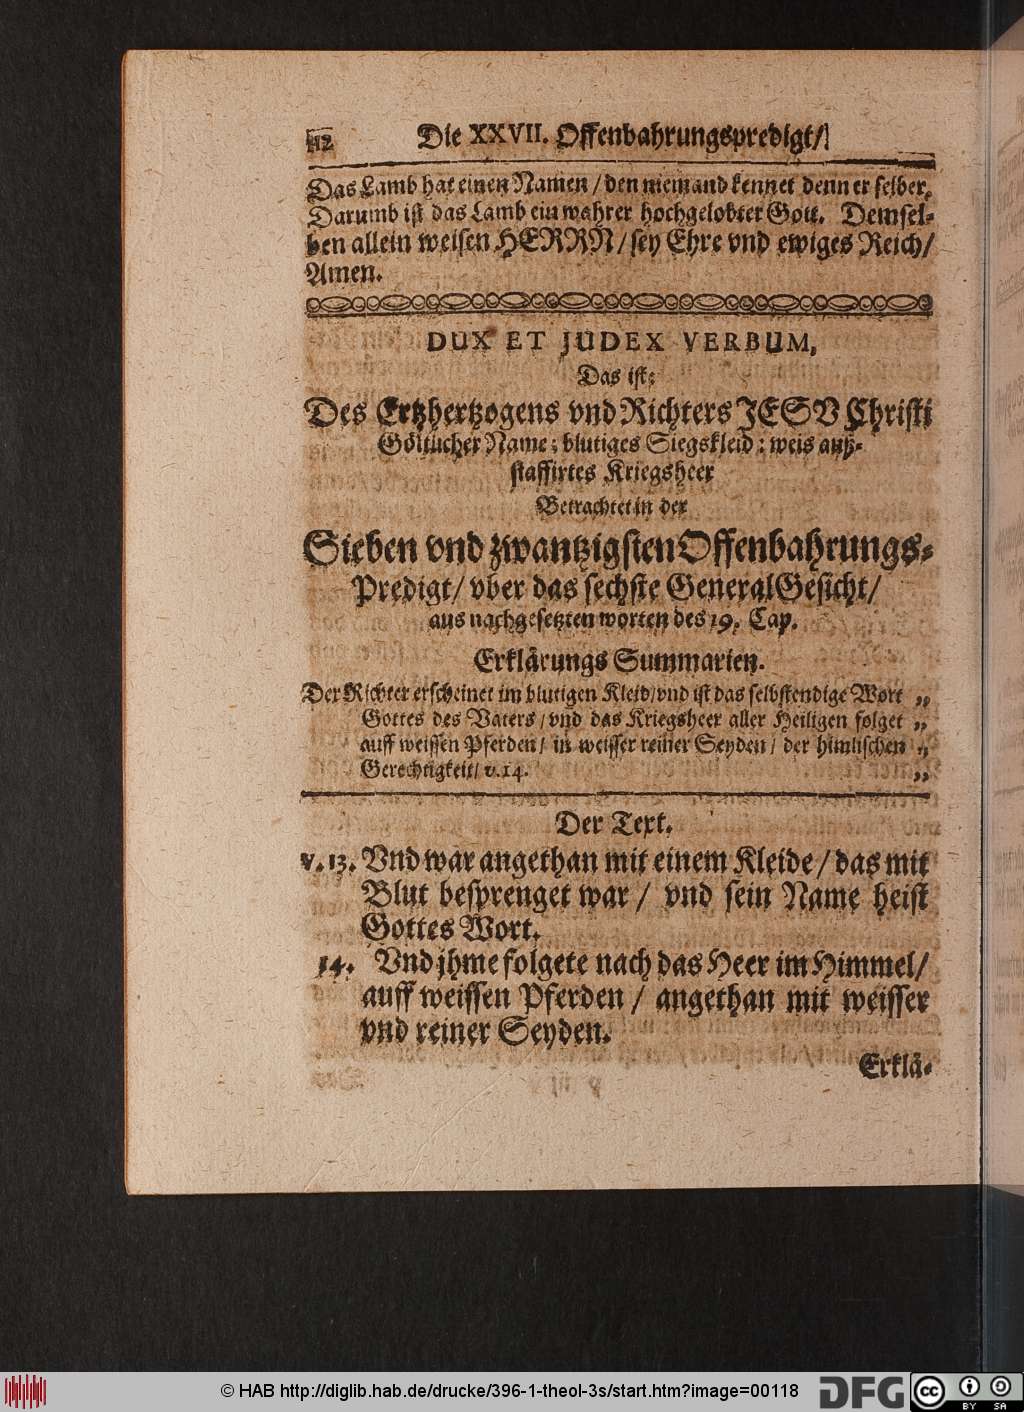 12 Die XXVII. Offenbahrungspredigt/
Das Lamb hat einen Namen / den niemand kennet denn er selber,
Darumb ist das Lamb ein wahrer hochgelobter Gott. Demsel-
ben allein weisen HERRN / sey Ehre vnd ewiges Reich/
Amen.
DUX ET JUDEX VERBUM,
Das ist:
Des Ertzhertzogens vnd Richters JESV Christi
Göttlicher Name: blutiges Siegskleid: weis auß-
staffirtes Kriegsheer
Betrachtet in der
Sieben vnd zwantzigsten Offenbahrungs-
Predigt/ vber das sechste General Gesicht/
aus nachgesetzten worten des 19. Cap.
Erklärungs Summarien.
Der Richter erscheinet im blutigen Kleid/vnd ist das selbstendige Wort „
Gottes des Vaters / vnd das Kriegsheer aller Heiligen folget „
auff weissen Pferden/ in weisser reiner Seyden / der himlischen „
Gerechtigkeit/ v.14. „
Der Text.
v. 13. Vnd war angethan mit einem Kleide / das mit
Blut besprenget war / vnd sein Name heist
Gottes Wort.
14. Vnd jhme folgete nach das Heer im Himmel/
auff weissen Pferden / angethan mit weisser
vnd reiner Seyden.
Erklä-
© HAB http://diglib.hab.de/drucke/396-1-theol-3s/start.htm?image=00118
DFG
cc BY SA